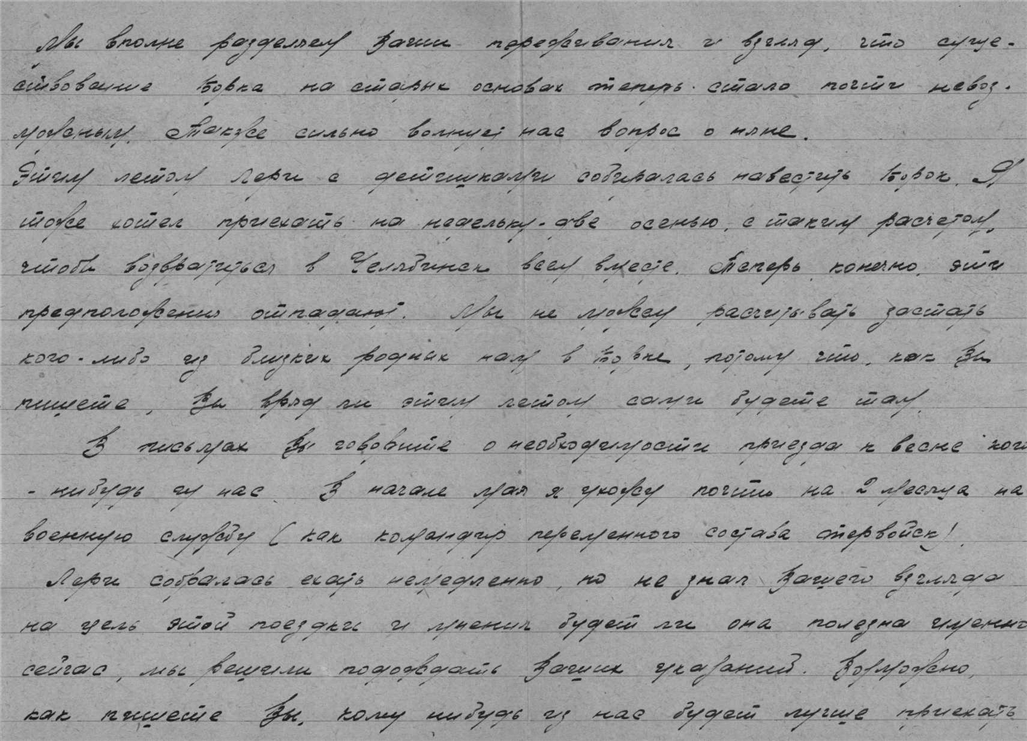 Мы вполне разделяем Ваши переживания и взгляд, что суще-
ствование Борка на старых основах теперь стало почти невоз-
можным. Также сильно волнует нас вопрос о няне.
Этим летом Лери с детишками собиралась навестить Борок. Я
тоже хотел приехать на недельку-две осенью, с таким расчетом,
чтобы возвратиться в Челябинск всем вместе. Теперь, конечно, эти
предположения отпадают. Мы не можем расчитывать застать
кого-либо из близких родных нам в Борке, потому что, как Вы
пишете, Вы вряд ли этим летом сами будете там.
В письмах Вы говорите о необходимости приезда к весне кого
-нибудь из нас. В начале мая я ухожу почти на 2 месяца на
военную службу (как командир переменного состава тервойск).
Лери собралась ехать немедленно, но не зная Вашего взгляда
на цель этой поездки и мнения будет ли она полезна именно
сейчас, мы решили подождать Ваших указаний. Возможно,
как пишете Вы, кому нибудь из нас будет лучше приехать